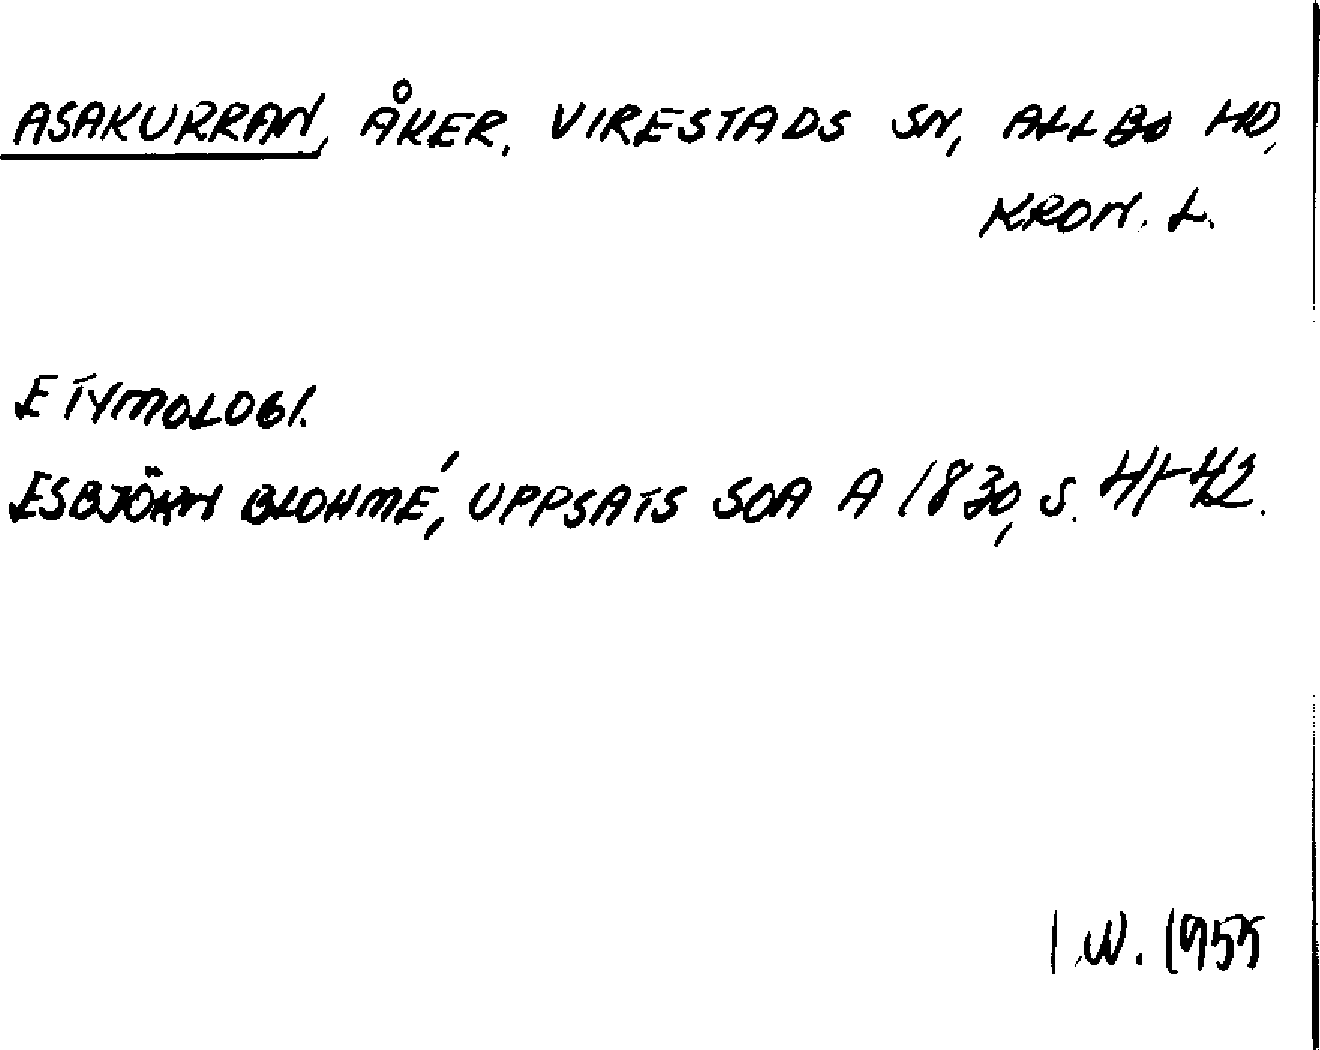 ASAKURRAN, ÅKER, VIRESTADS SN, ALLBO HD,
KRON. L.
ETYMOLOGI.
ESBJÖRN BLOHMÉ, UPPSATS SOA A 1830, S. 41-42.
I.W. 1955